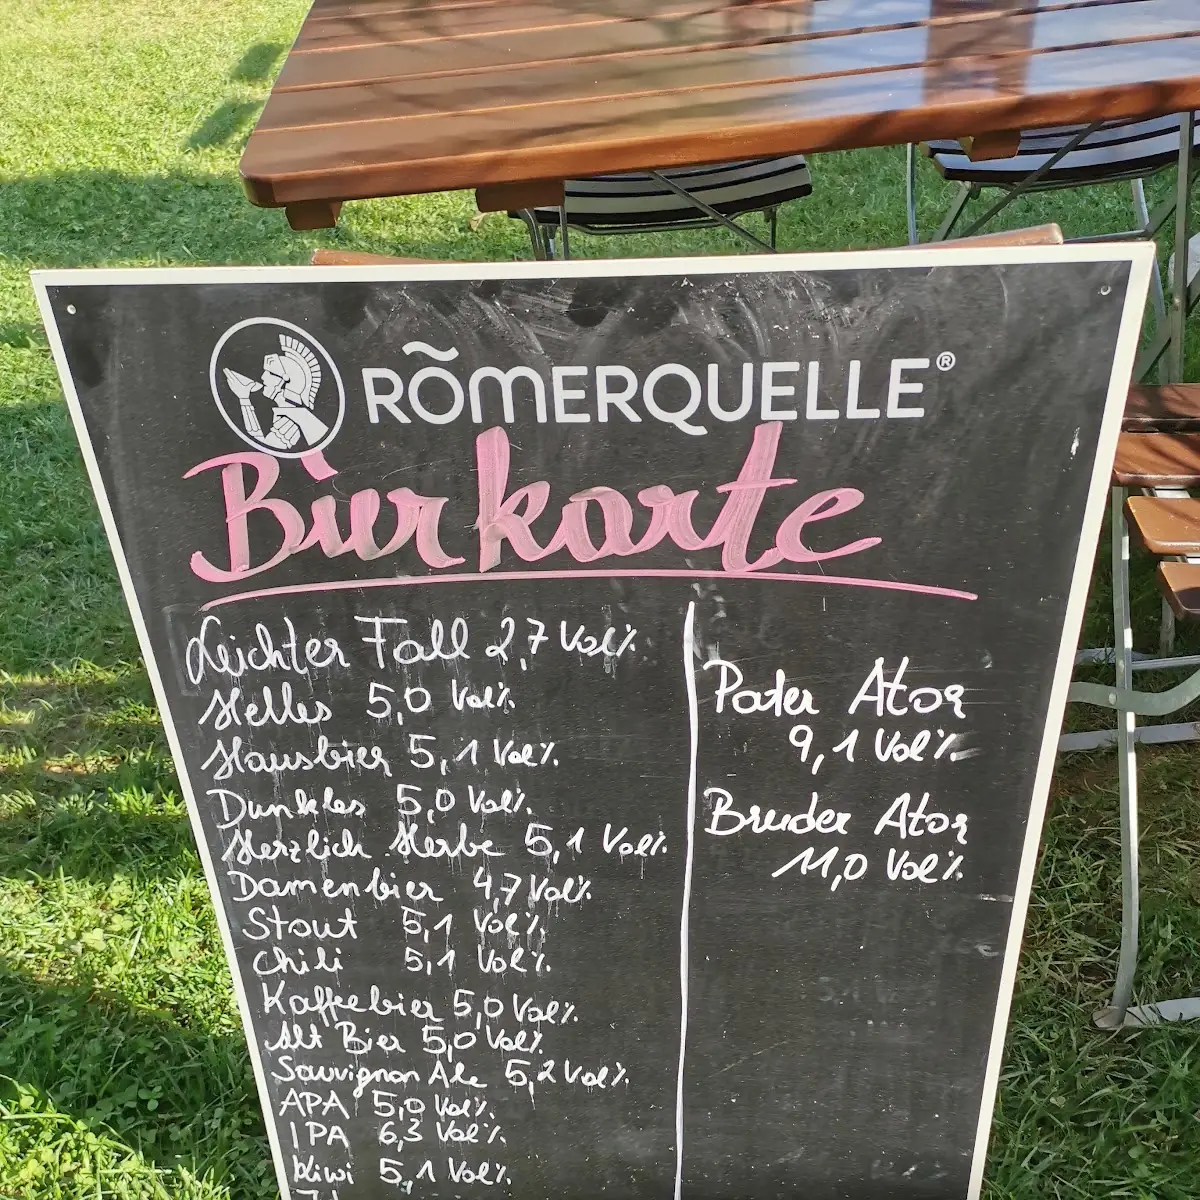 RÖMERQUELLE®
Bierkarte
Leichter Fall 2,7 Vol%
Helles 5,0 Vol%
Hausbier 5,1 Vol%.
Dunkles 5,0 Vol%.
Herzlich Herbe 5,1 Vol%.
Damenbier 4,7 Vol%.
Stout 5,1 Vol%.
Chili 5,1 Vol%.
Kaffeebier 5,0 Vol%.
Alt Bier 5,0 Vol%.
Sauvignon Ale 5,2 Vol%.
APA 5,0 Vol%.
IPA 6,3 Vol%.
Kiwi 5,1 Vol%.
Pater Ator
9,1 Vol%.
Bruder Ator
11,0 Vol%.